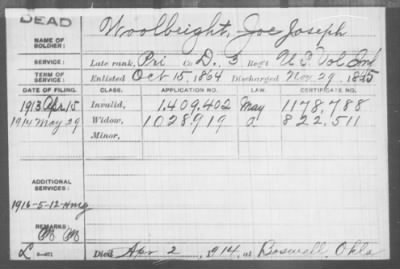 DEAD
NAME OF SOLDIER: Woolbright, Joe Joseph
SERVICE: Late rank, Pri Co D. 3 Reg't U.S. Vol Ind
TERM OF SERVICE: Enlisted Oct 15, 1864 Discharged Nov. 29, 1865
DATE OF FILING. CLASS. APPLICATION NO. LAW. CERTIFICATE NO.
1913 Apr. 15 Invalid, 1.409.402 May 1178.788
1914 May 29 Widow, 1028.919 a 822.511
Minor,
ADDITIONAL SERVICES:
1916-5-12-
REMARKS:
L
Died Apr 2, 1914, at Boswell, Okla